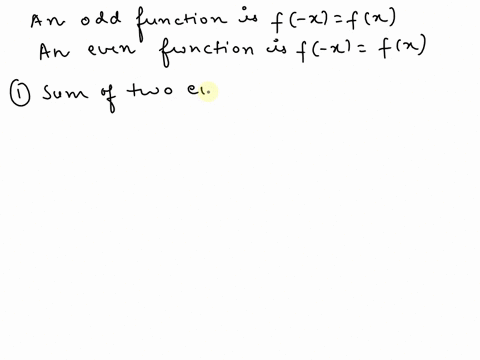 An odd function is f(-x) = f(x)
An even function is f(-x) = f(x)
① Sum of two ev